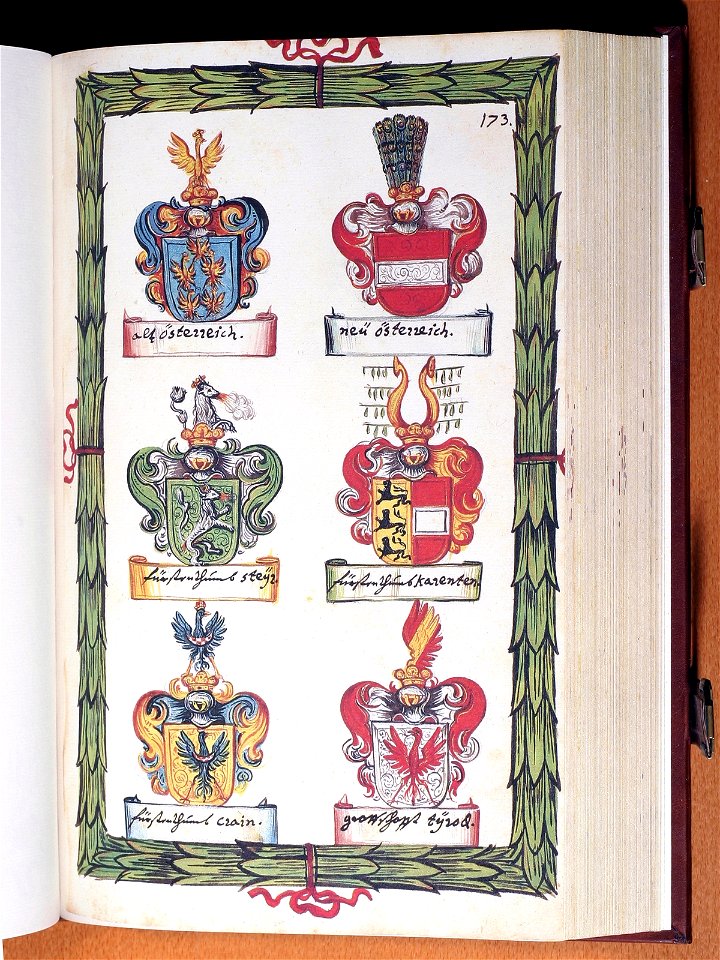 173.
alt österreich.
neü österreich.
fürstenthumb steÿr.
fürstenthumb karenten.
fürstenthumb crain.
graffschafft tÿrol.